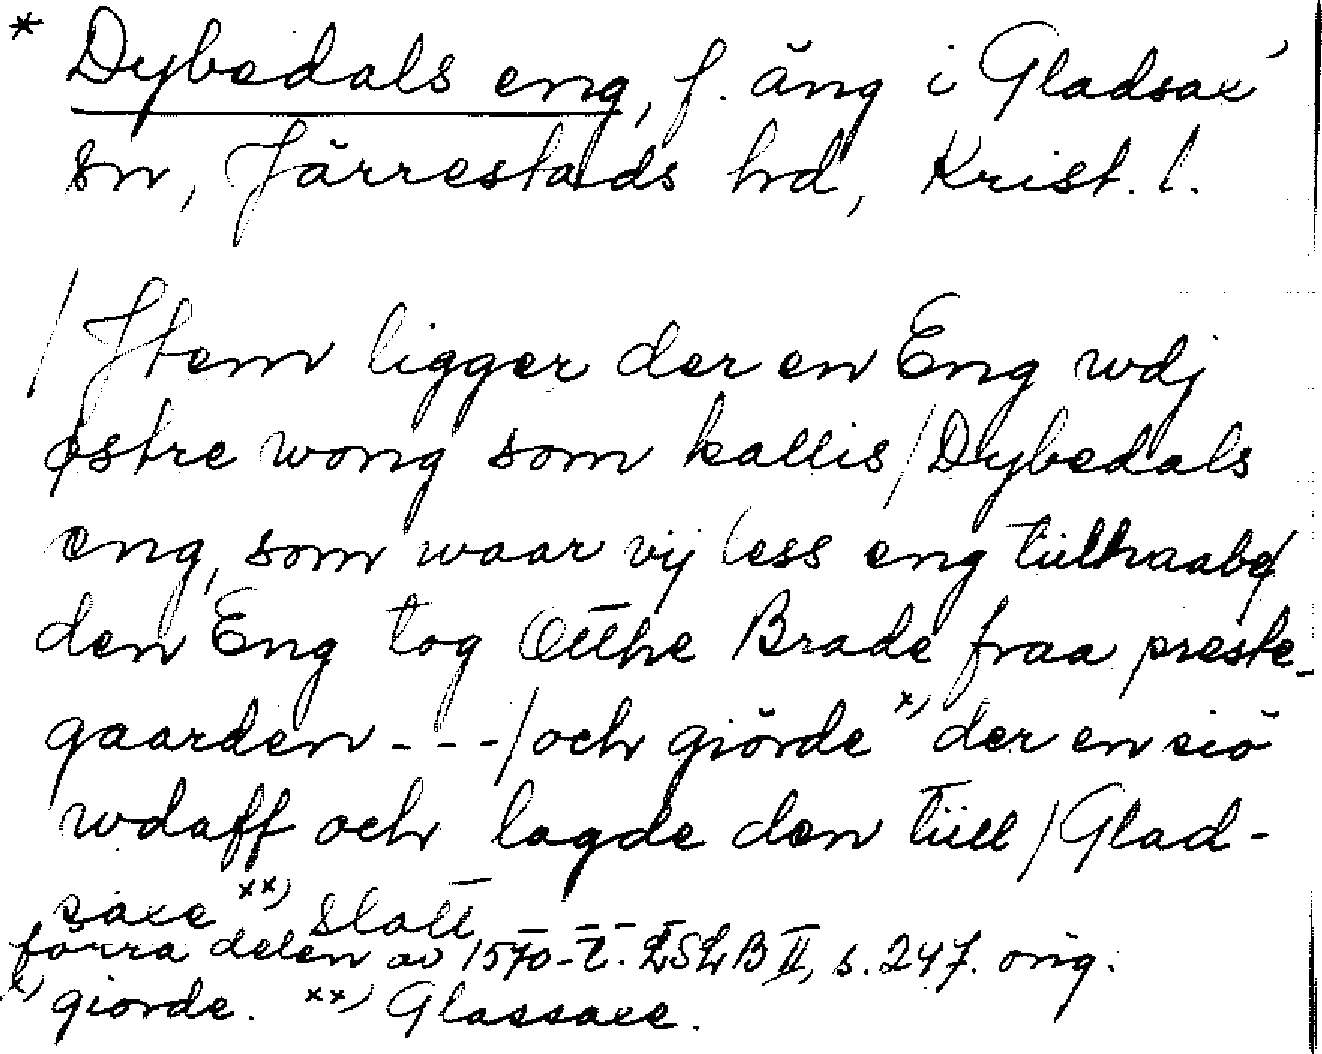 * Dybedals eng, f. äng i Gladsax'
sn, Järrestads hd, Krist. l.
/ Jtem ligger der en Eng wdj
østre wong som kallis / Dybedals
eng, som waar vij less eng tillhaabe/
den Eng tog Otthe Brade fraa preste-
gaarden - - - / och giörde x) der en siö
wdaff och lagde den till / Glad-
saxe xx) Slott
förra delen av 1570-t. LSLB II, s. 247. orig.
x) giorde. xx) Glassaxe.